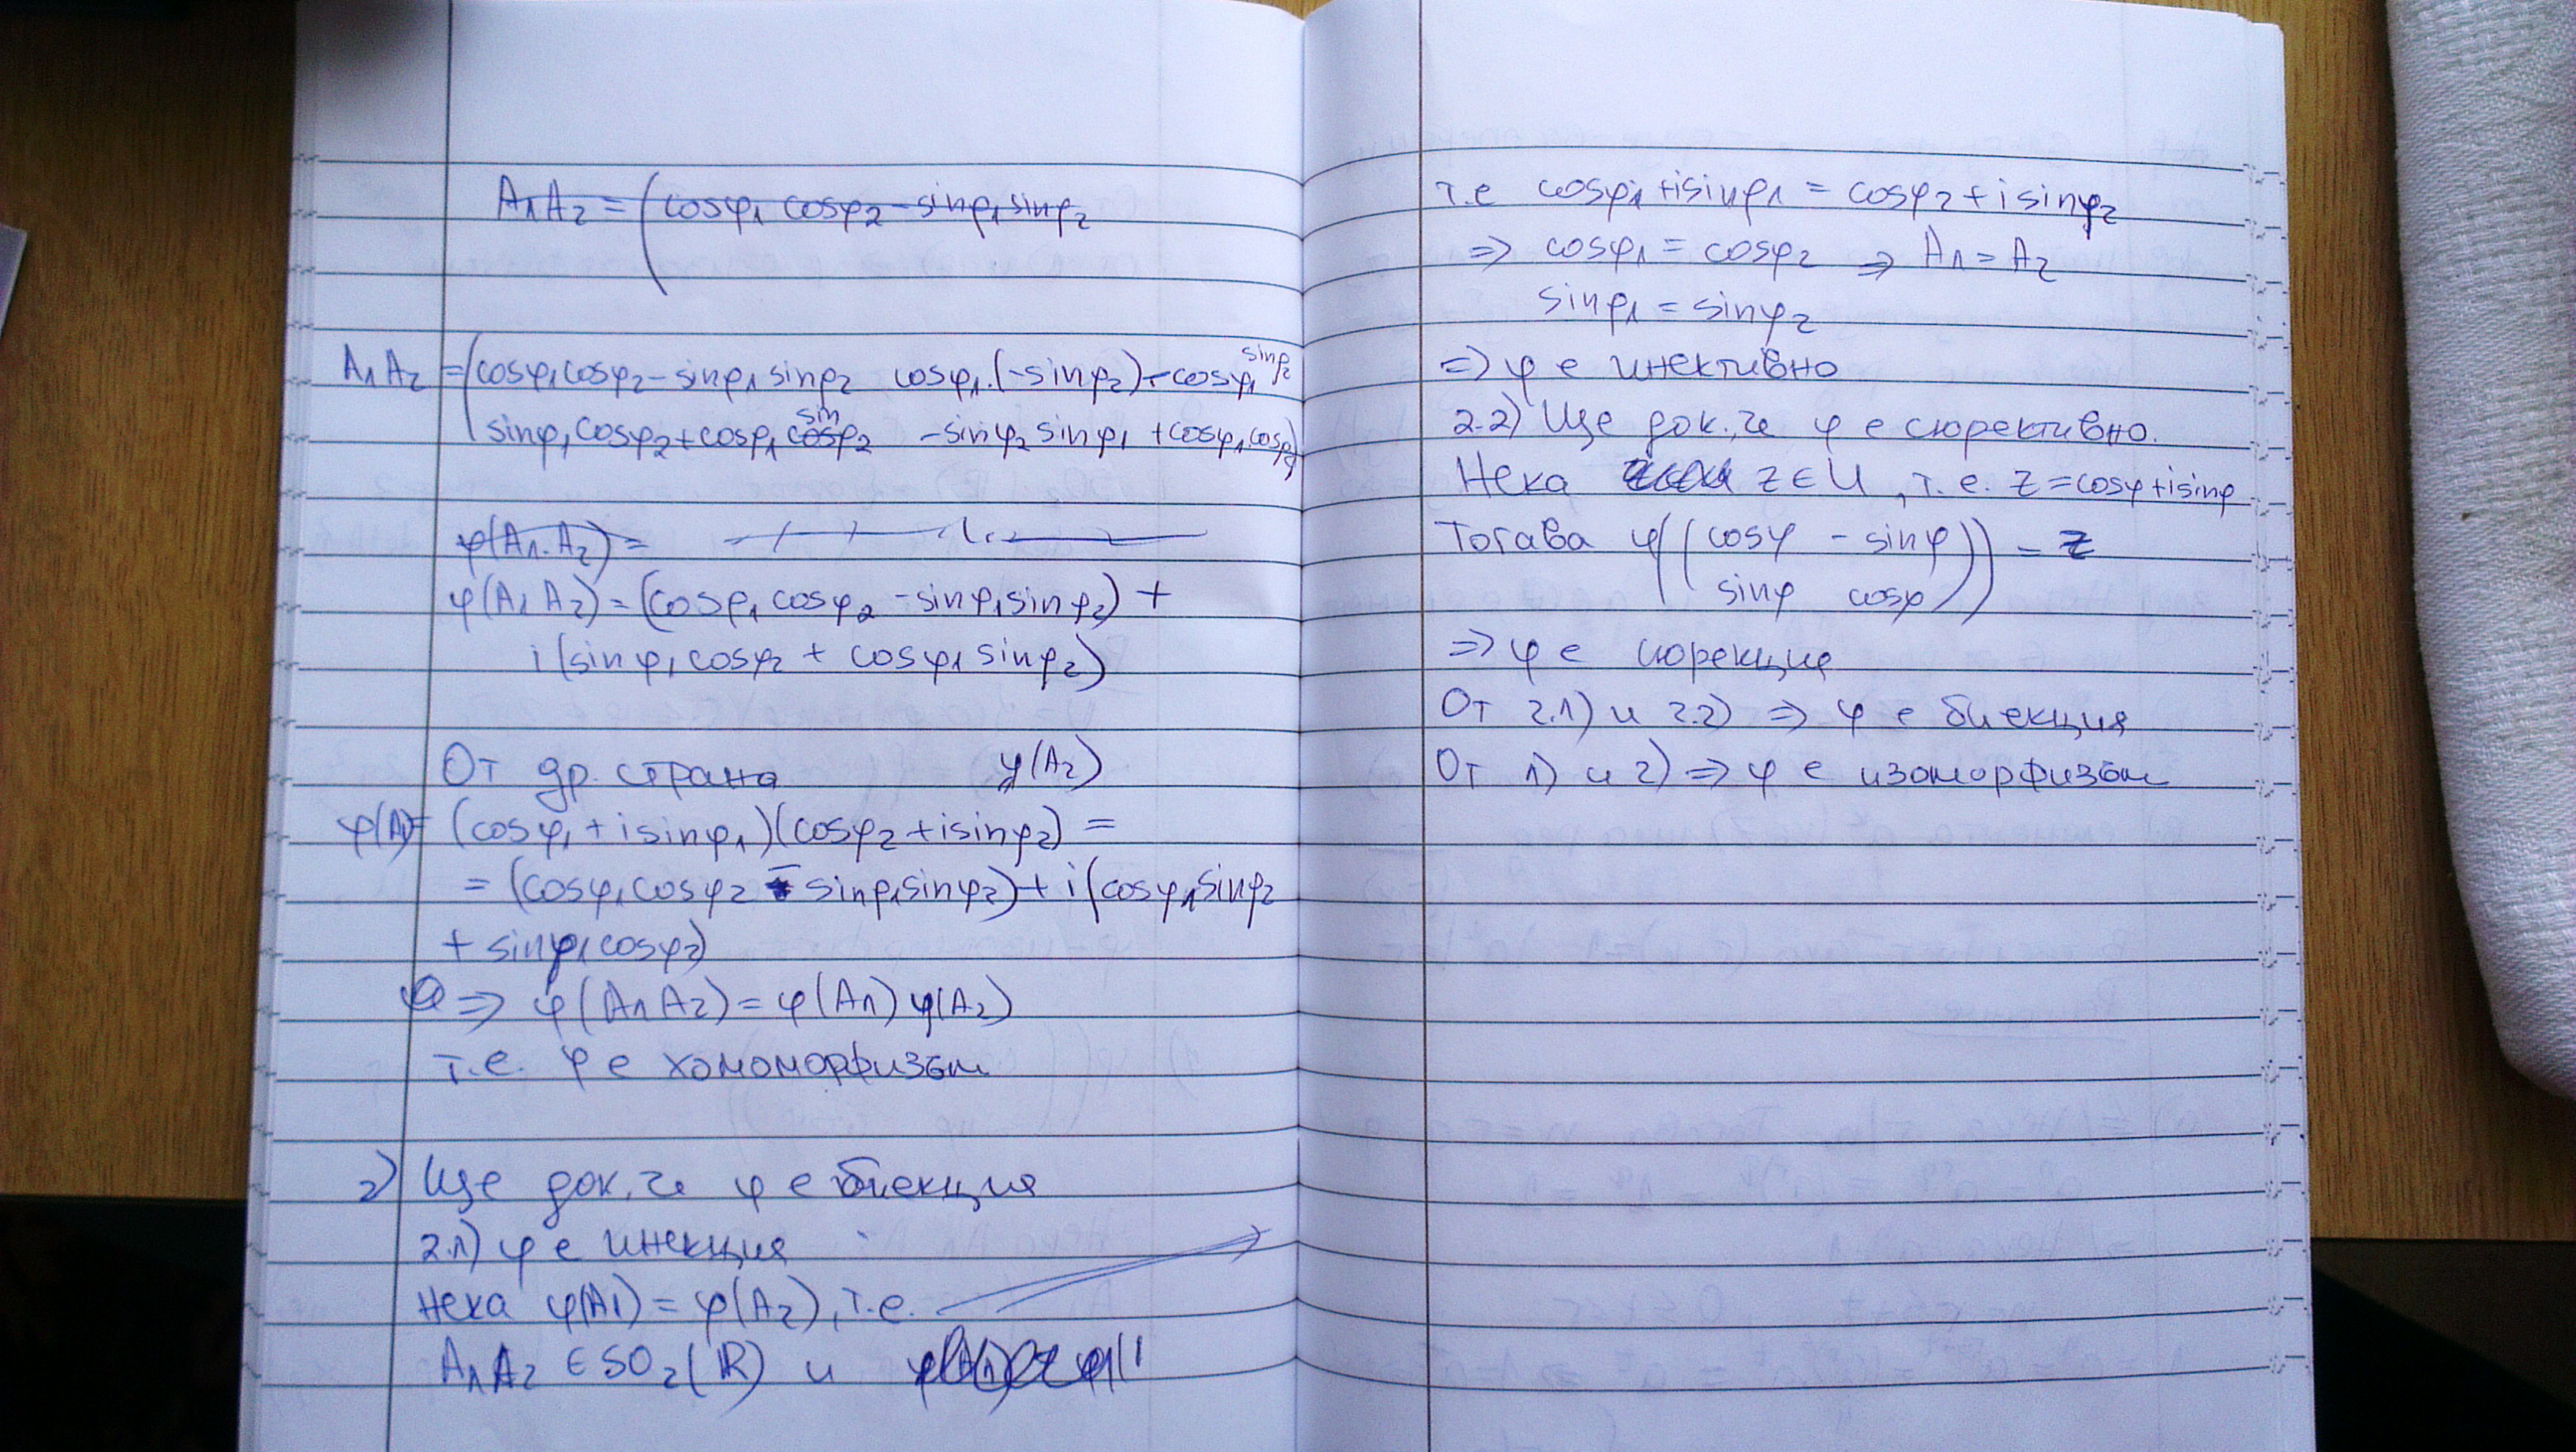 A₁A₂ = (cosφ₁ cosφ₂ - sinφ₁ sinφ₂
A₁A₂ = (cosφ₁cosφ₂ - sinφ₁ sinφ₂ cosφ₁.(-sinφ₂) - cosφ₁ sinφ₂
sinφ₁cosφ₂ + cosφ₁ cos sin φ₂ -sinφ₂ sinφ₁ + cosφ₁cosφ₂)
φ(A₁.A₂) =
φ(A₁A₂) = (cosφ₁cosφ₂ - sinφ₁sinφ₂) +
i(sinφ₁cosφ₂ + cosφ₁ sinφ₂)
От др. страна φ(A₂)
φ(A₁)= (cosφ₁ + i sinφ₁)(cosφ₂ + isinφ₂) =
= (cosφ₁cosφ₂ - sinφ₁sinφ₂) + i(cosφ₁sinφ₂
+ sinφ₁cosφ₂)
=> φ(A₁A₂) = φ(A₁) φ(A₂)
т.е. φ е хомоморфизъм
2) Ще док, че φ е биекция
2.1) φ е инекция
Нека φ(A1) = φ(A₂), т.е.
A₁A₂ ∈ SO₂(ℝ) и
т.е cosφ₁ + isinφ₁ = cosφ₂ + i sinφ₂
=> cosφ₁ = cosφ₂ => A₁ = A₂
sinφ₁ = sinφ₂
=> φ е инективно
2.2) Ще док., че φ е сюрективно.
Нека z ∈ U, т.е. z = cosφ + isinφ
Тогава φ((cosφ - sinφ)) = z
sinφ cosφ
=> φ е сюрекция
От 2.1) и 2.2) => φ е биекция
От 1) и 2) => φ е изоморфизъм